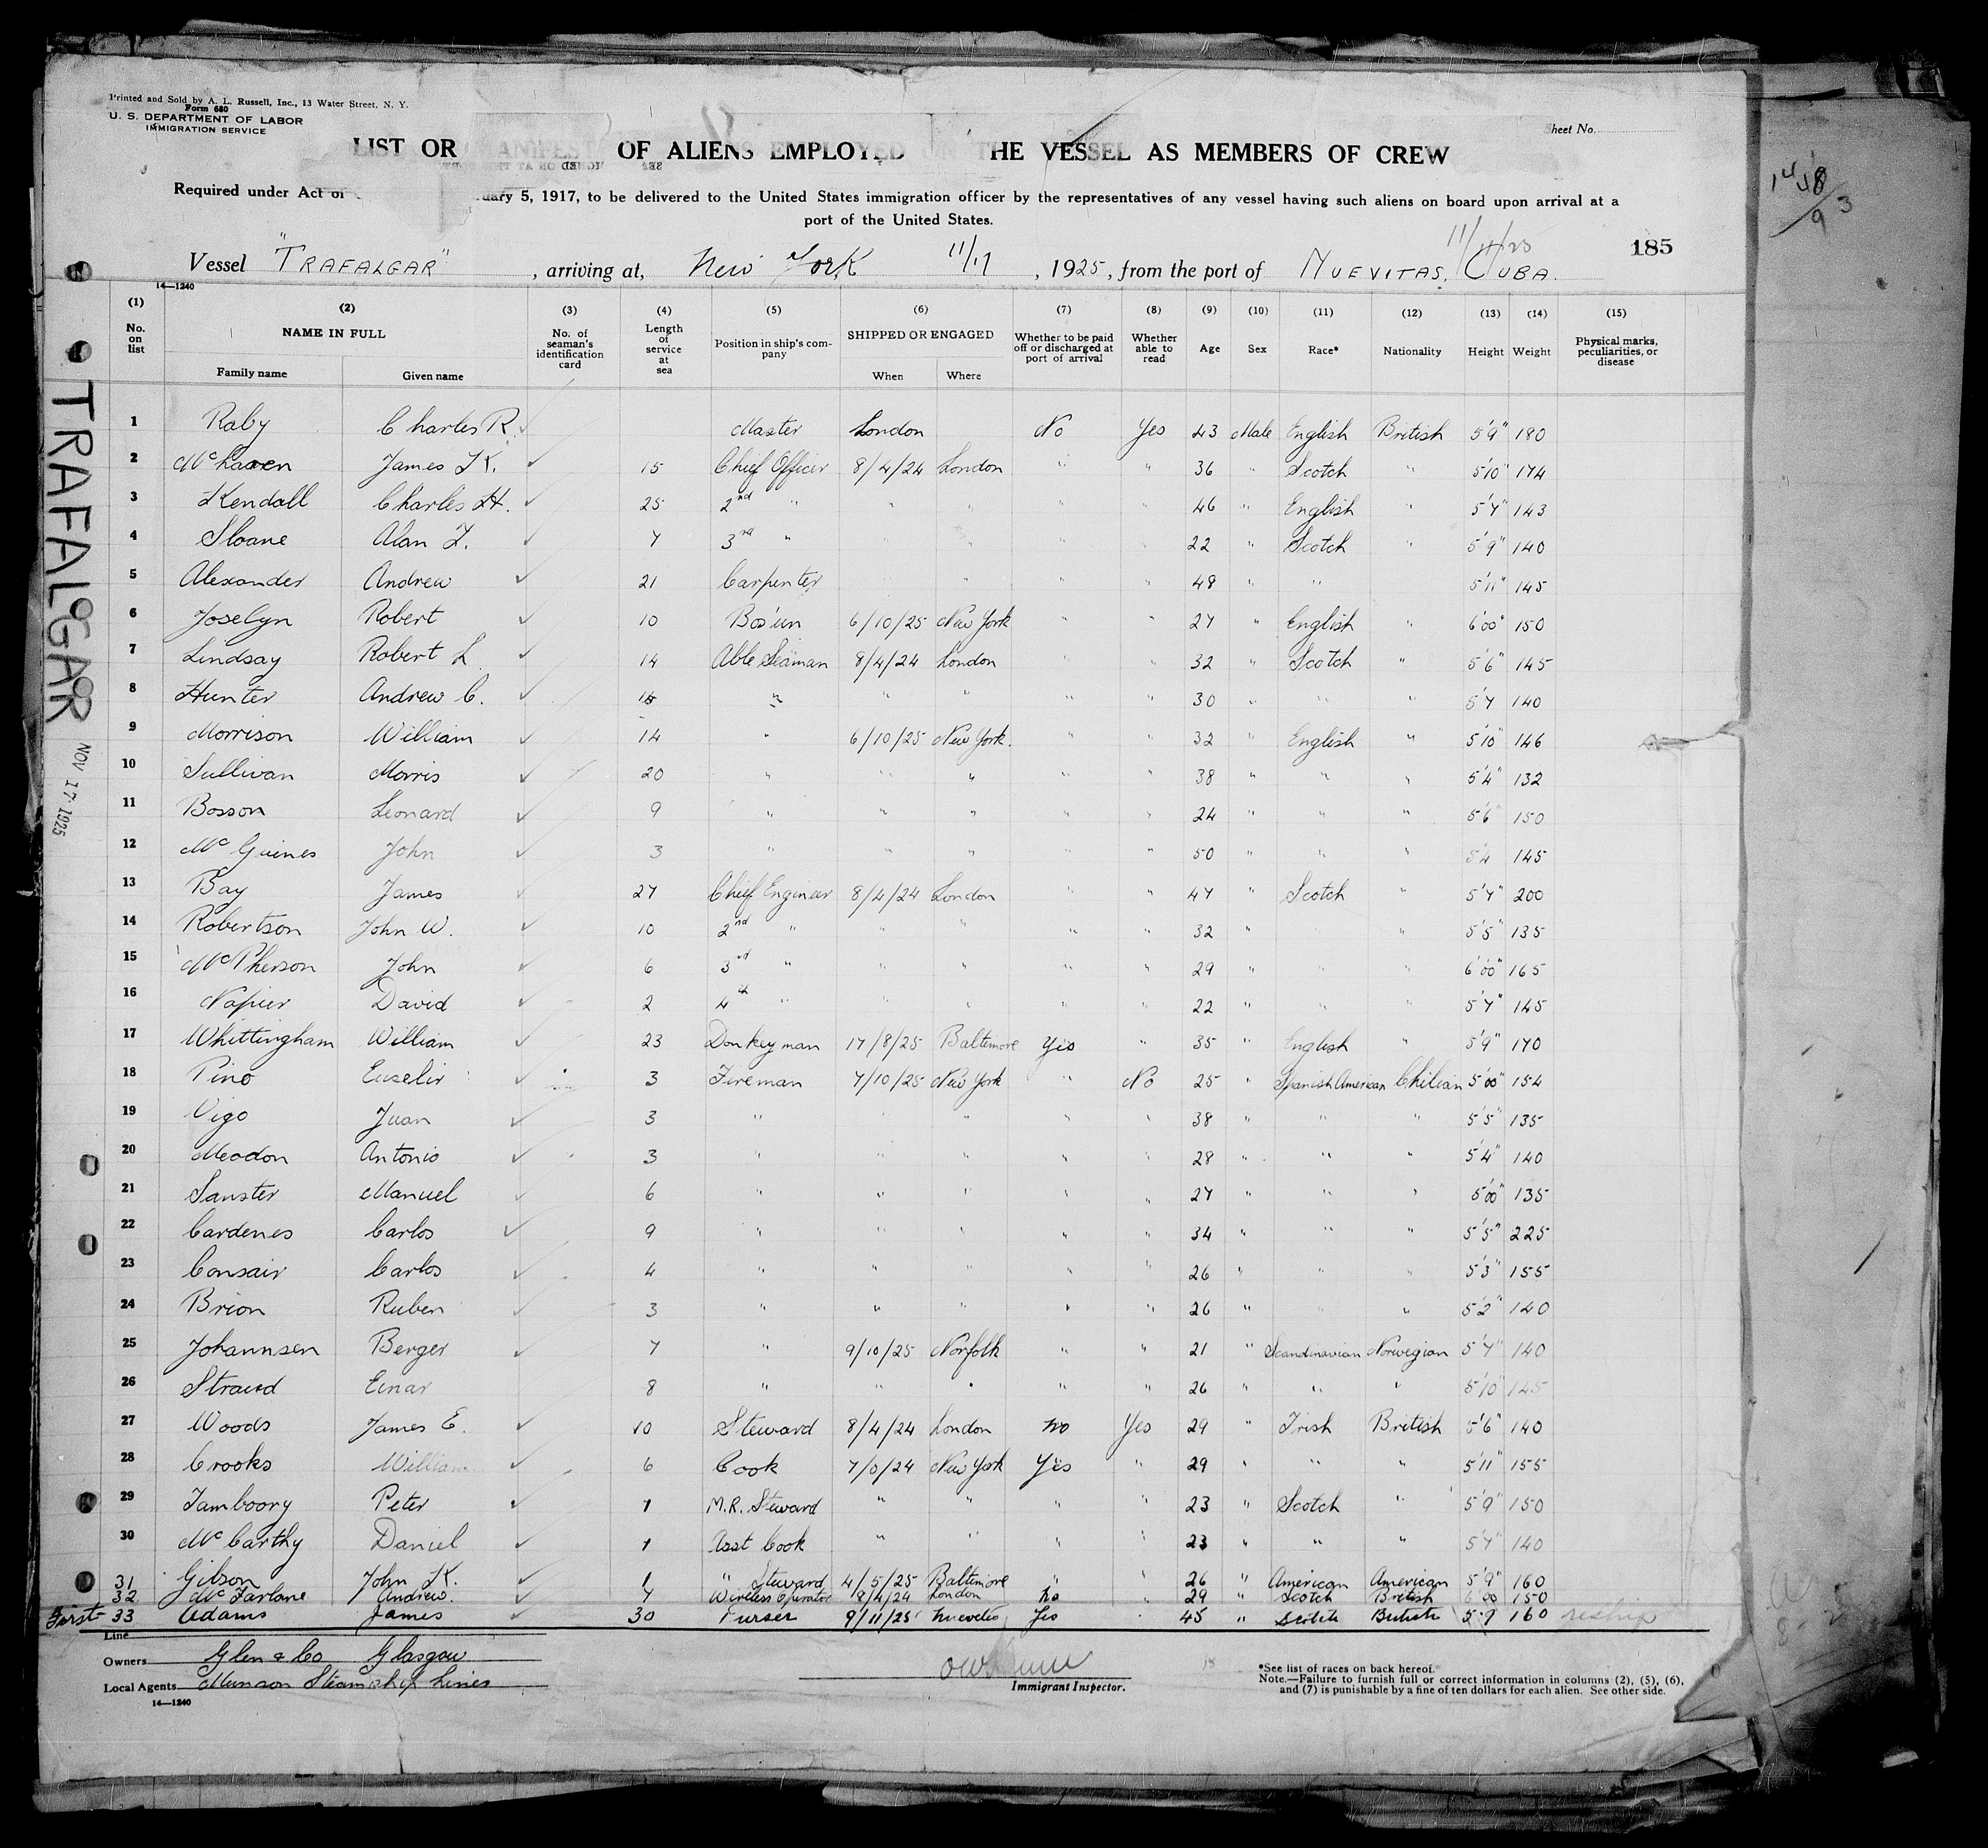 Printed and Sold by A. L. Russell, Inc., 13 Water Street, N. Y.
Form 680
U. S. DEPARTMENT OF LABOR
IMMIGRATION SERVICE
heet No.
LIST OR MANIFEST OF ALIENS EMPLOYED THE VESSEL AS MEMBERS OF CREW
Required under Act of uary 5, 1917, to be delivered to the United States immigration officer by the representatives of any vessel having such aliens on board upon arrival at a
port of the United States.
185
Vessel "TRAFALGAR", arriving at, New York 11/17, 1925, from the port of NUEVITAS, CUBA.
14—1240
(1) (2) (3) (4) (5) (6) (7) (8) (9) (10) (11) (12) (13) (14) (15)
No. on list NAME IN FULL Family name Given name No. of seaman's identification card Length of service at sea Position in ship's company SHIPPED OR ENGAGED When Where Whether to be paid off or discharged at port of arrival Whether able to read Age Sex Race* Nationality Height Weight Physical marks, peculiarities, or disease
1 Raby Charles R. Master London No Yes 43 Male English British 5'9" 180
2 James K. 15 Chief Officer 8/4/24 London " " 36 " Scotch " 5'10" 174
3 Kendall Charles H. 25 2nd " " " " " 46 " English " 5'7" 143
4 Sloane Alan 7 3rd " " " " " 22 " Scotch " 5'9" 140
5 Alexander Andrew 21 Carpenter " " " 48 " " 5'11" 145
6 Joselyn Robert 10 Bos'un 6/10/25 New York " " 27 " English " 6'00" 150
7 Lindsay Robert L. 14 Able Seaman 8/4/24 London " " 32 " Scotch " 5'6" 145
8 Hunter Andrew C. " " " " " 30 " " " 5'7 140
9 Morrison William 14 " 6/10/25 New York. " " 32 " English " 5'10" 146
10 Sullivan Morris 20 " " " " " 38 " " " 5'4" 132
11 Bosson Leonard 9 " " " " " 24 " " " 5'6" 150
12 McGuines John 3 " " " " " 50 " " " 5'4 145
13 Bay James 27 Chief Engineer 8/4/24 London " " 47 " Scotch " 5'7" 200
14 Robertson John W. 10 2nd " " " " " 32 " " " 5'5" 135
15 McPherson John 6 3rd " " " " " 29 " " " 6'00" 165
16 Napier David 2 4th " " " " " 22 " " " 5'7" 145
17 Whittingham William 23 Donkeyman 17/8/25 Baltimore Yes " 35 " English " 5'9" 170
18 Pino 3 Fireman 7/10/25 New York " No 25 " Spanish American Chilian 5'00" 154
19 Vigo Juan 3 " " " " " 38 " " " 5'5" 135
20 Meodon Antonio 3 " " " " " 28 " " " 5'4" 140
21 Sanster Manuel 6 " " " " " 27 " " " 5'00" 135
22 Cardenes Carlos 9 " " " " " 34 " " " 5'5" 225
23 Consair Carlos 4 " " " " " 26 " " " 5'3" 155
24 Brion Ruben 3 " " " " " 26 " " " 5'2" 140
25 Johannsen Berger 7 " 9/10/25 Norfolk " " 21 " Scandinavian Norwegian 5'7" 140
26 Einar 8 " " " " " 26 " " " 5'10" 145
27 Woods James E. 10 Steward 8/4/24 London no Yes 29 " Irish British 5'6" 140
28 Crooks William 6 Cook New York Yes " 29 " " " 5'11" 155
29 Tamboory Peter 1 M.R. Steward " " " " 23 " Scotch " 5'9" 150
30 McCarthy Daniel 1 Asst Cook " " " " 23 " " " 5'7" 140
31 Gibson John K. 1 " Steward 4/5/25 Baltimore " " 26 " American American 5'9" 160
32 McFarlane Andrew. 7 Wireless Operator 8/4/24 London No " 29 " Scotch British 6'00 150
First 33 Adams James 30 Purser 9/11/25 Yes 45 " Scotch British 5'9 160 reship
Line
Owners Glen & Co Glasgow
Local Agents Munson Steamship Lines
14—1240
Immigrant Inspector.
*See list of races on back hereof.
Note.—Failure to furnish full or correct information in columns (2), (5), (6),
and (7) is punishable by a fine of ten dollars for each alien. See other side.
TRAFALGAR
NOV 17 1925